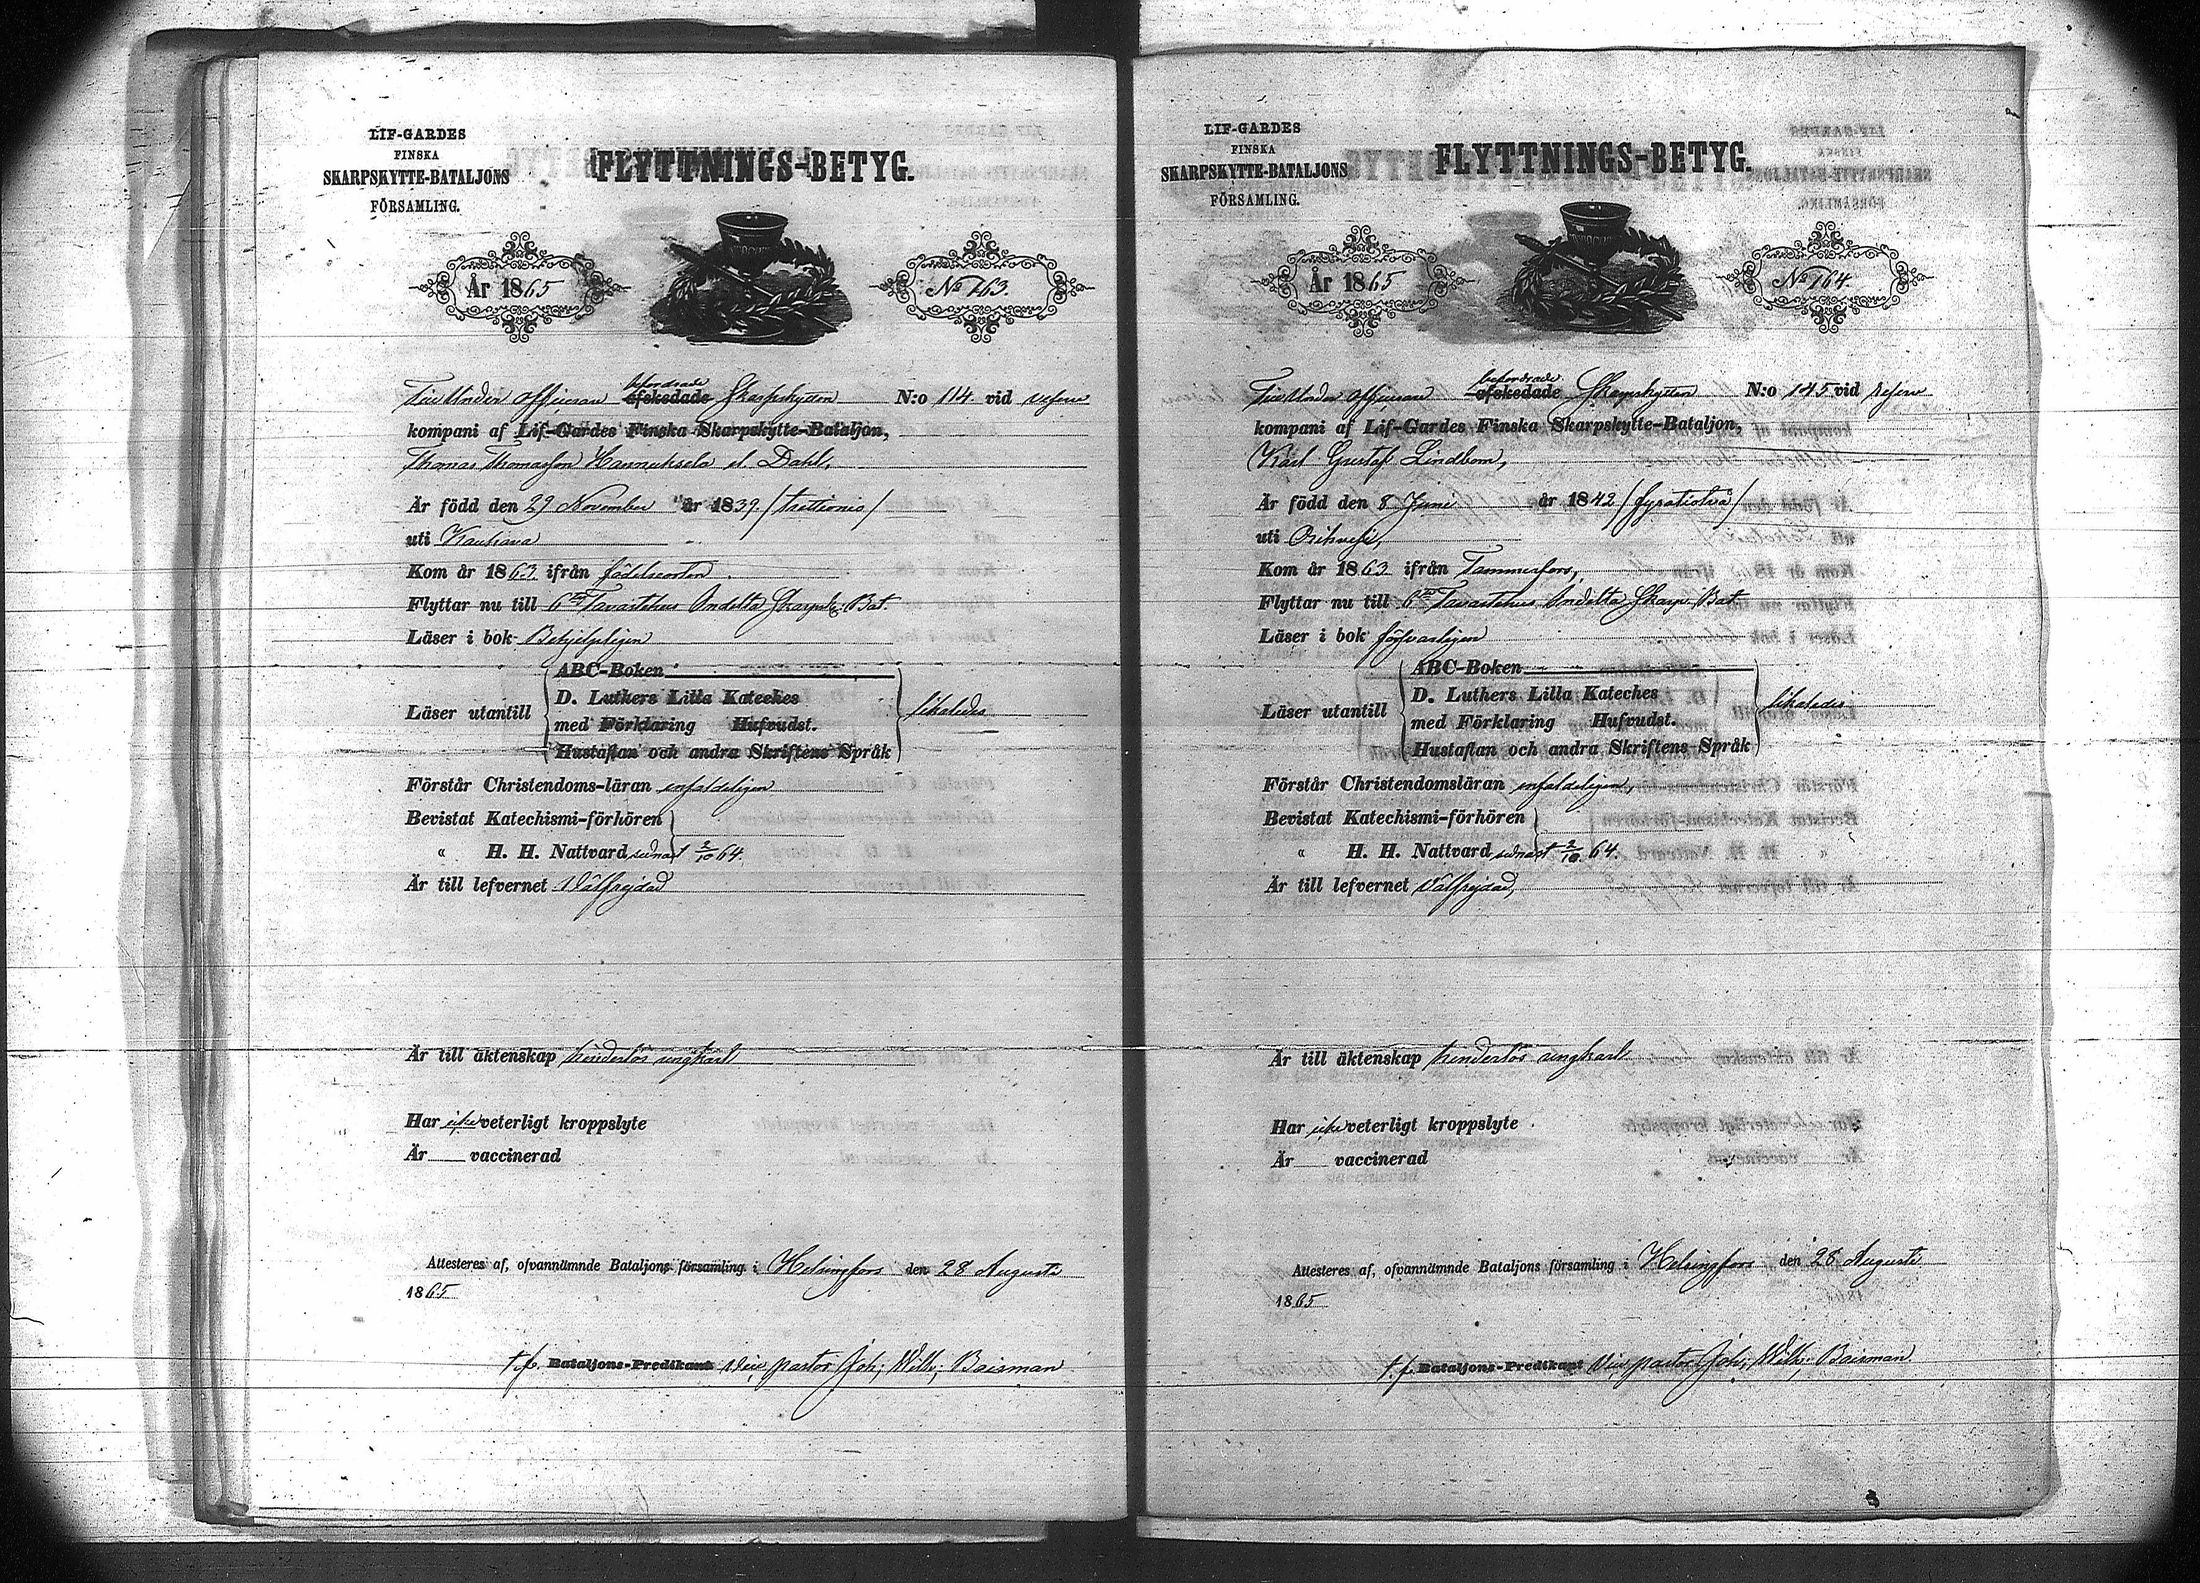 LIF-GARDES
FINSKA
SKARPSKYTTE-BATALJONS
FÖRSAMLING.
FLYTTNINGS-BETYG.
År 1865
No 763.
Till Under officeran befordrade afskedade Skarpskytten N:o 114 vid reserv
kompani af Lif-Gardes Finska Skarpskytte-Bataljon,
Thomas Thomasson Hannuksela el. Dahl,
Är född den 29 November år 1839 /trettionio/
uti Kauhava
Kom år 1863 ifrån födelseorten.
Flyttar nu till 6te Tavastehus Indelta Skarpsk: Bat.
Läser i bok Behjelpligen
ABC-Boken
D. Luthers Lilla Kateches
Läser utantill med Förklaring Hufvudst. likaledes
Hustaflan och andra Skriftens Språk
Förstår Christendoms-läran enfaldeligen
Bevistat Katechismi-förhören
" H. H. Nattvard senast 2/10 64.
Är till lefvernet Välfrejdad
Är till äktenskap hinderlös ungkarl
Har icke veterligt kroppslyte
Är vaccinerad
Attesteras af, ofvannämnde Bataljons församling i Helsingfors den 28 Augusti
1865
t.f. Bataljons-Predikant Vice pastor Joh; Wilh; Boisman
LIF-GARDES
FINSKA
SKARPSKYTTE-BATALJONS
FÖRSAMLING.
FLYTTNINGS-BETYG.
År 1865
No 764.
Till Under officeran befordrade afskedade Skarpskytten N:o 145 vid reserv
kompani af Lif-Gardes Finska Skarpskytte-Bataljon,
Karl Gustaf Lindbom,
Är född den 8 Juni år 1842 /fyratiotvå/
uti Orihvesi,
Kom år 1863 ifrån Tammerfors,
Flyttar nu till 6te Tavastehus Indelta Skarp. Bat.
Läser i bok försvarligen
ABC-Boken
D. Luthers Lilla Kateches
Läser utantill med Förklaring Hufvudst. likaledes
Hustaflan och andra Skriftens Språk
Förstår Christendomsläran enfaldeligen,
Bevistat Katechismi-förhören
" H. H. Nattvard senast 2/10 64.
Är till lefvernet Välfrejdad,
Är till äktenskap hinderlös ungkarl
Har icke veterligt kroppslyte
Är vaccinerad
Attesteras af, ofvannämnde Bataljons församling i Helsingfors den 28 Augusti
1865
t.f. Bataljons-Predikant Vice pastor Joh; Wilh; Boisman